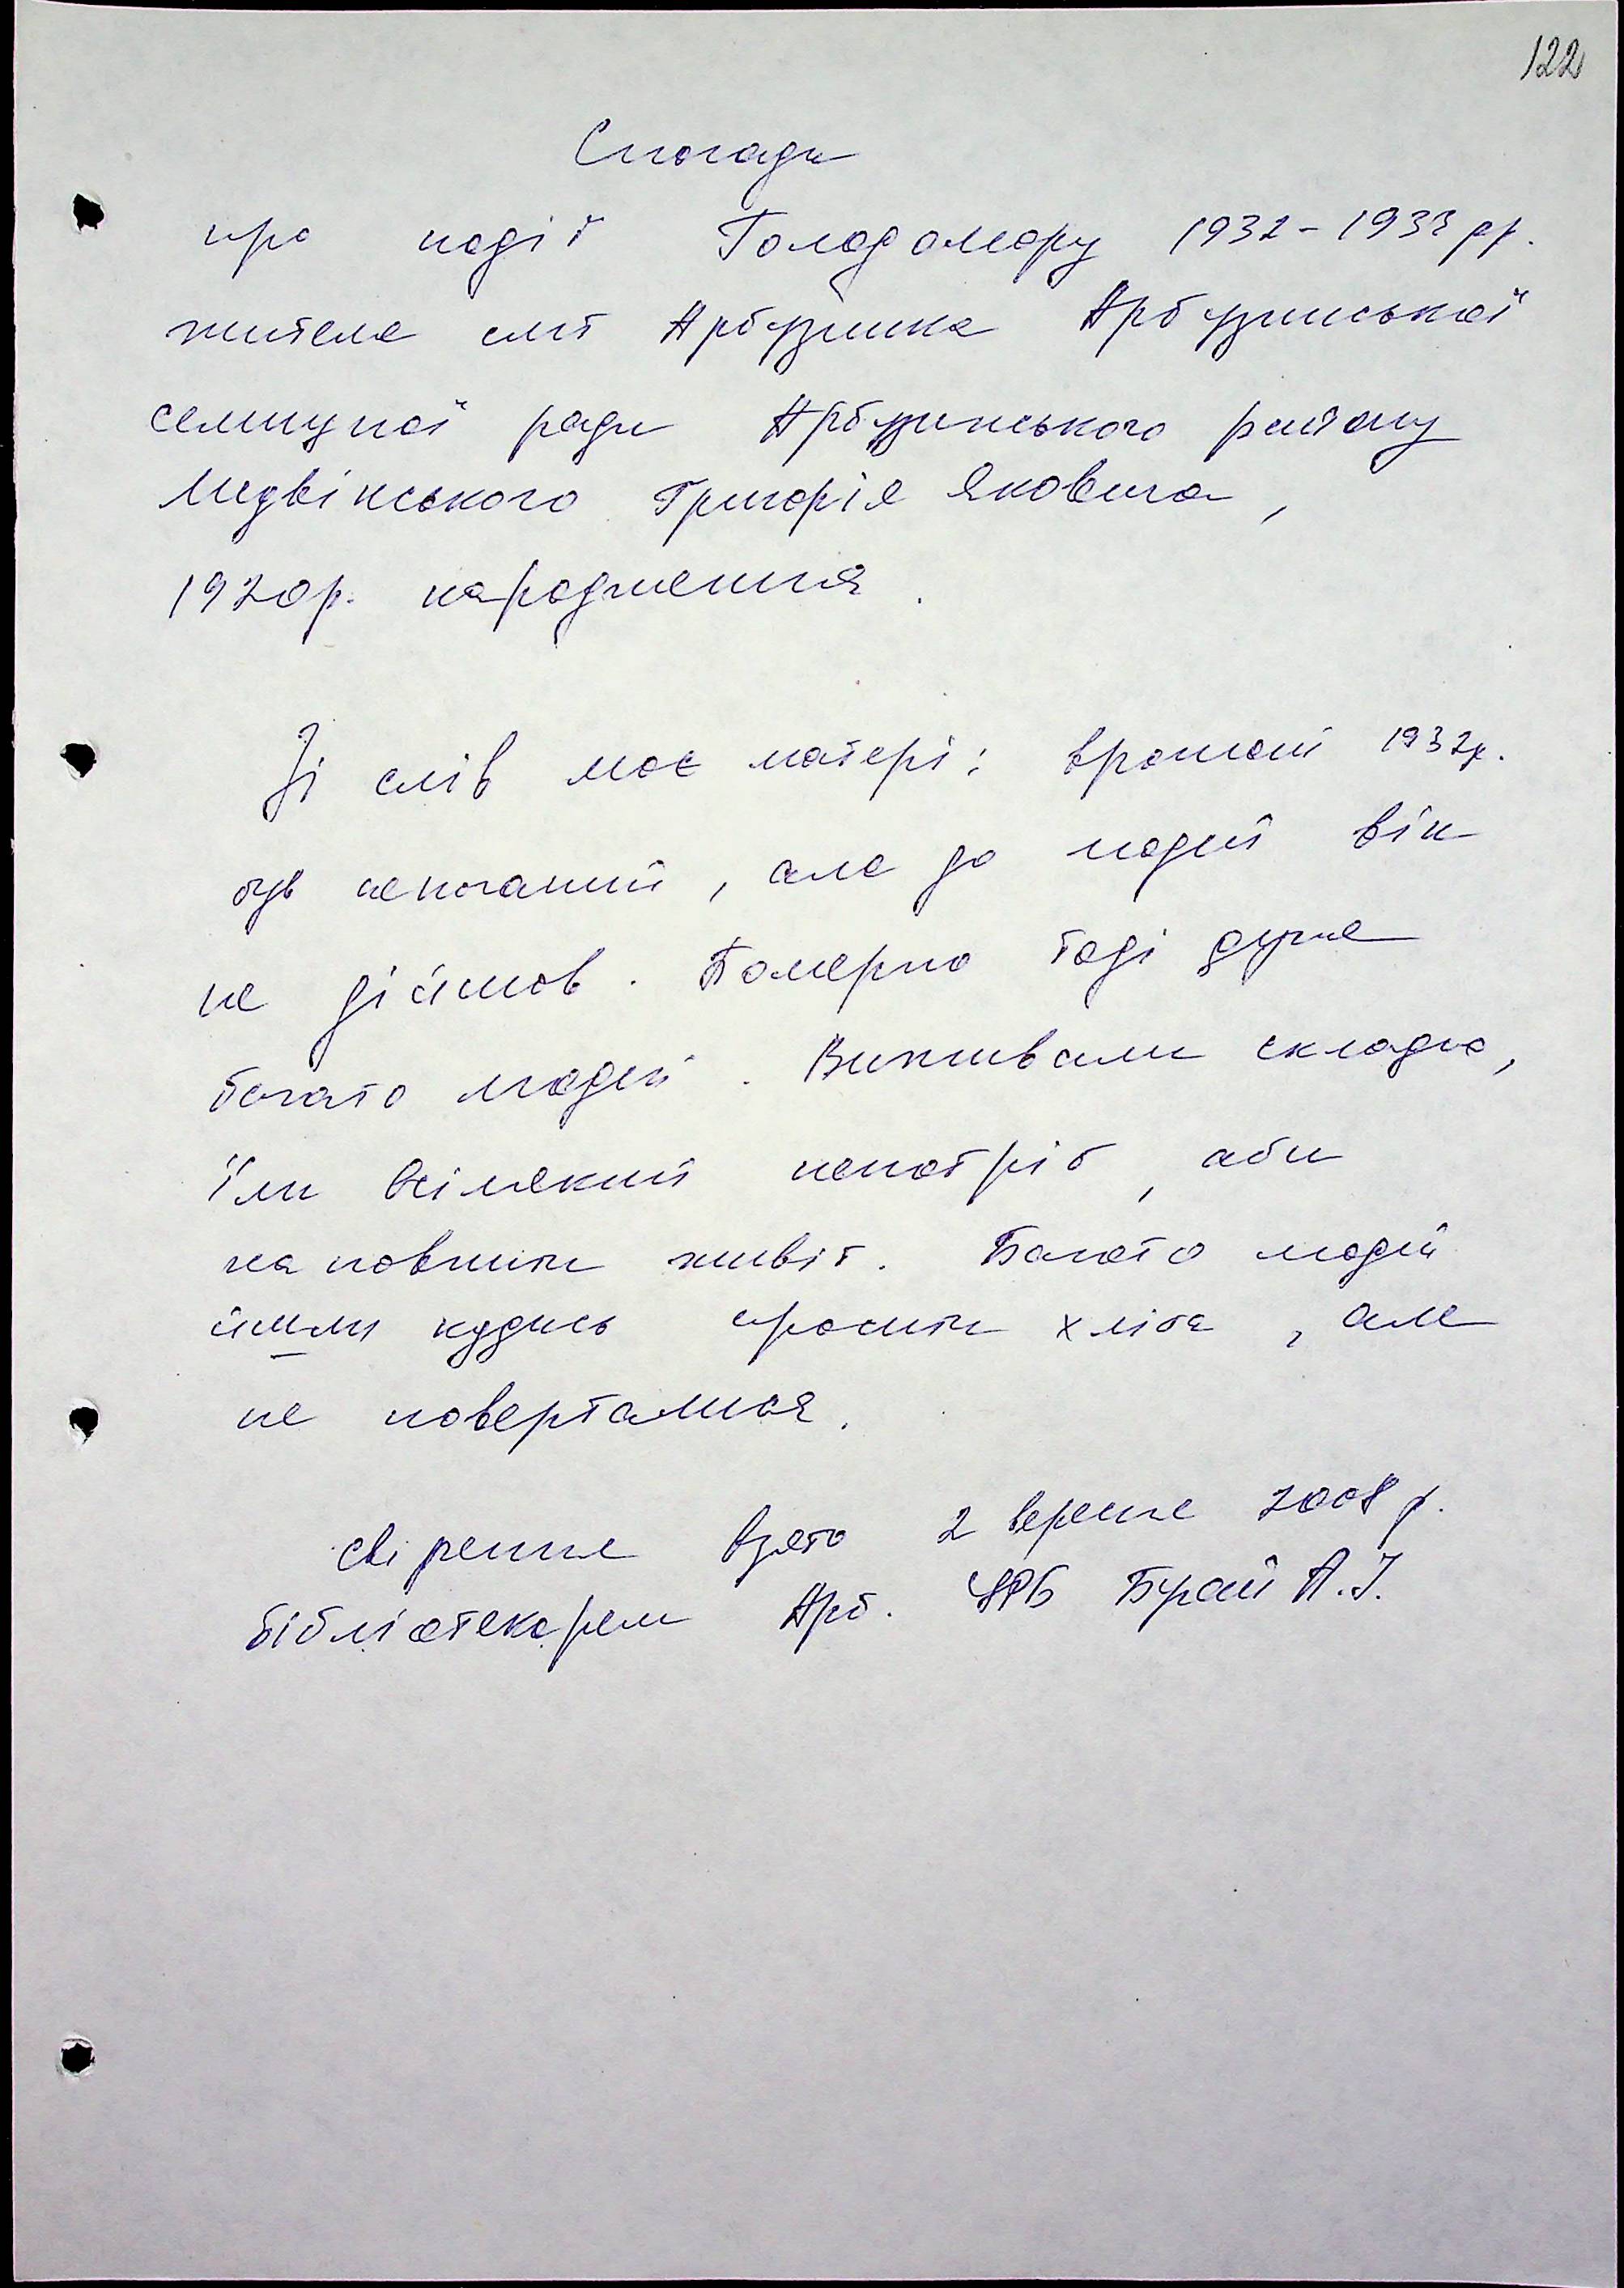 122
Спогади
про події Голодомору 1932-1933 рр.
жителя смт Арбузинка Арбузинської
селищної ради Арбузинського району
Медвінського Григорія Яковича,
1920р. народження.
Зі слів моє матері: врожай 1932р.
був непоганий, але до людей він
не дійшов. Померло тоді дуже
багато людей. Виживали складно,
їли всілякий непотріб, аби
наповнити живіт. Багато людей
йшли кудись просити хліба, але
не повертлися.
свідчення взято 2 вересня 2008 р.
бібліотекарем Арб. ЦРБ Бурай А.І.